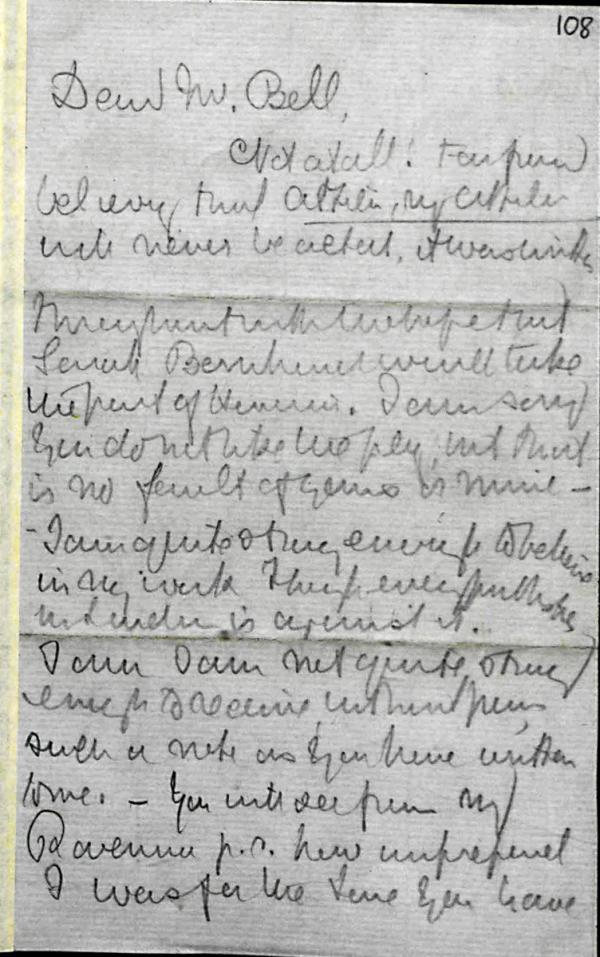 108
Dear Mr. Bell,
Not at all! I am fain
believing that Attila, my Attila
will never be acted, it was written
throughout with the hope that
Sarah Bernhardt would take
the part of Honoria. I am sorry
you do not like the play, but that
is no fault of yours or mine –
– I am quite strong enough to believe
in my work though every publisher
in London is against it.
I am not quite strong
enough to receive, without pain,
such a note as you have written
to me. – You will see from my
Ravenna p.s. how unprepared
I was for the tone you have